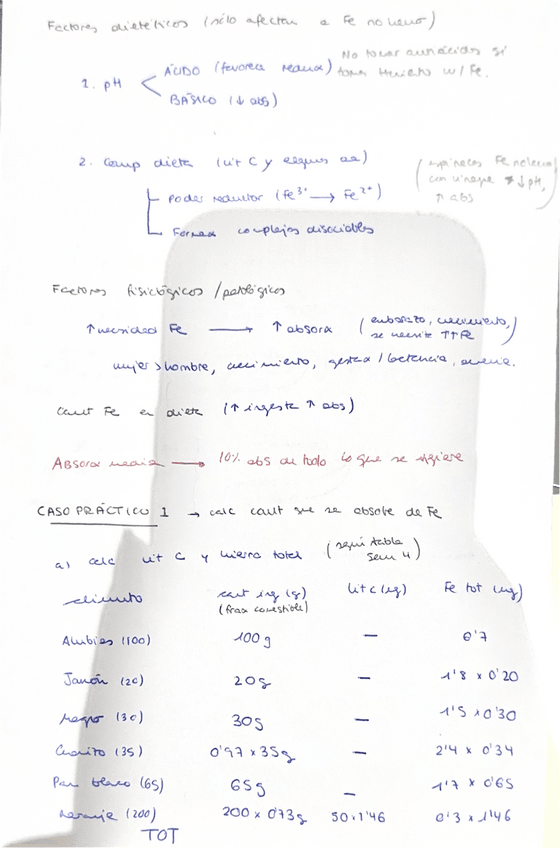 Factores dietéticos (sólo afectan a Fe no hemo)
1. pH
ÁCIDO (favorece redux)
No tomar antiácidos si
toma w/ Fe.
BÁSICO (↓ abs)
2. Comp dieta (vit C y algunos aa)
Poder reductor (Fe3+ → Fe2+)
(espinacas Fe
con vinagre → ↓pH,
↑ abs
Forman complejos disociables
Factores fisiológicos / patológicos
↑ necesidad Fe → ↑ absorx (embarazo, crecimiento,
se necesite ↑↑Fe)
mujer > hombre, crecimiento, gestax / lactancia, anemia.
Cant Fe en dieta (↑ ingesta ↑ abs)
Absorx media → 10% abs de todo lo que se ingiere
CASO PRÁCTICO 1 → calc cant que se absorbe de Fe
a) calc vit C y hierro total (según tabla
sem 4)
alimento cant ing (g) Vit C (mg) Fe tot (mg)
(frax comestible)
Alubias (100) 100g — 0'7
Jamón (20) 20g — 1'8 x 0'20
magro (30) 30g — 1'5 x 0'30
Chorizo (35) 0'97 x 35g — 2'4 x 0'34
Pan blanco (65) 65g — 1'7 x 0'65
naranja (200) 200 x 0'73g 50x1'46 0'3 x 1'46
TOT